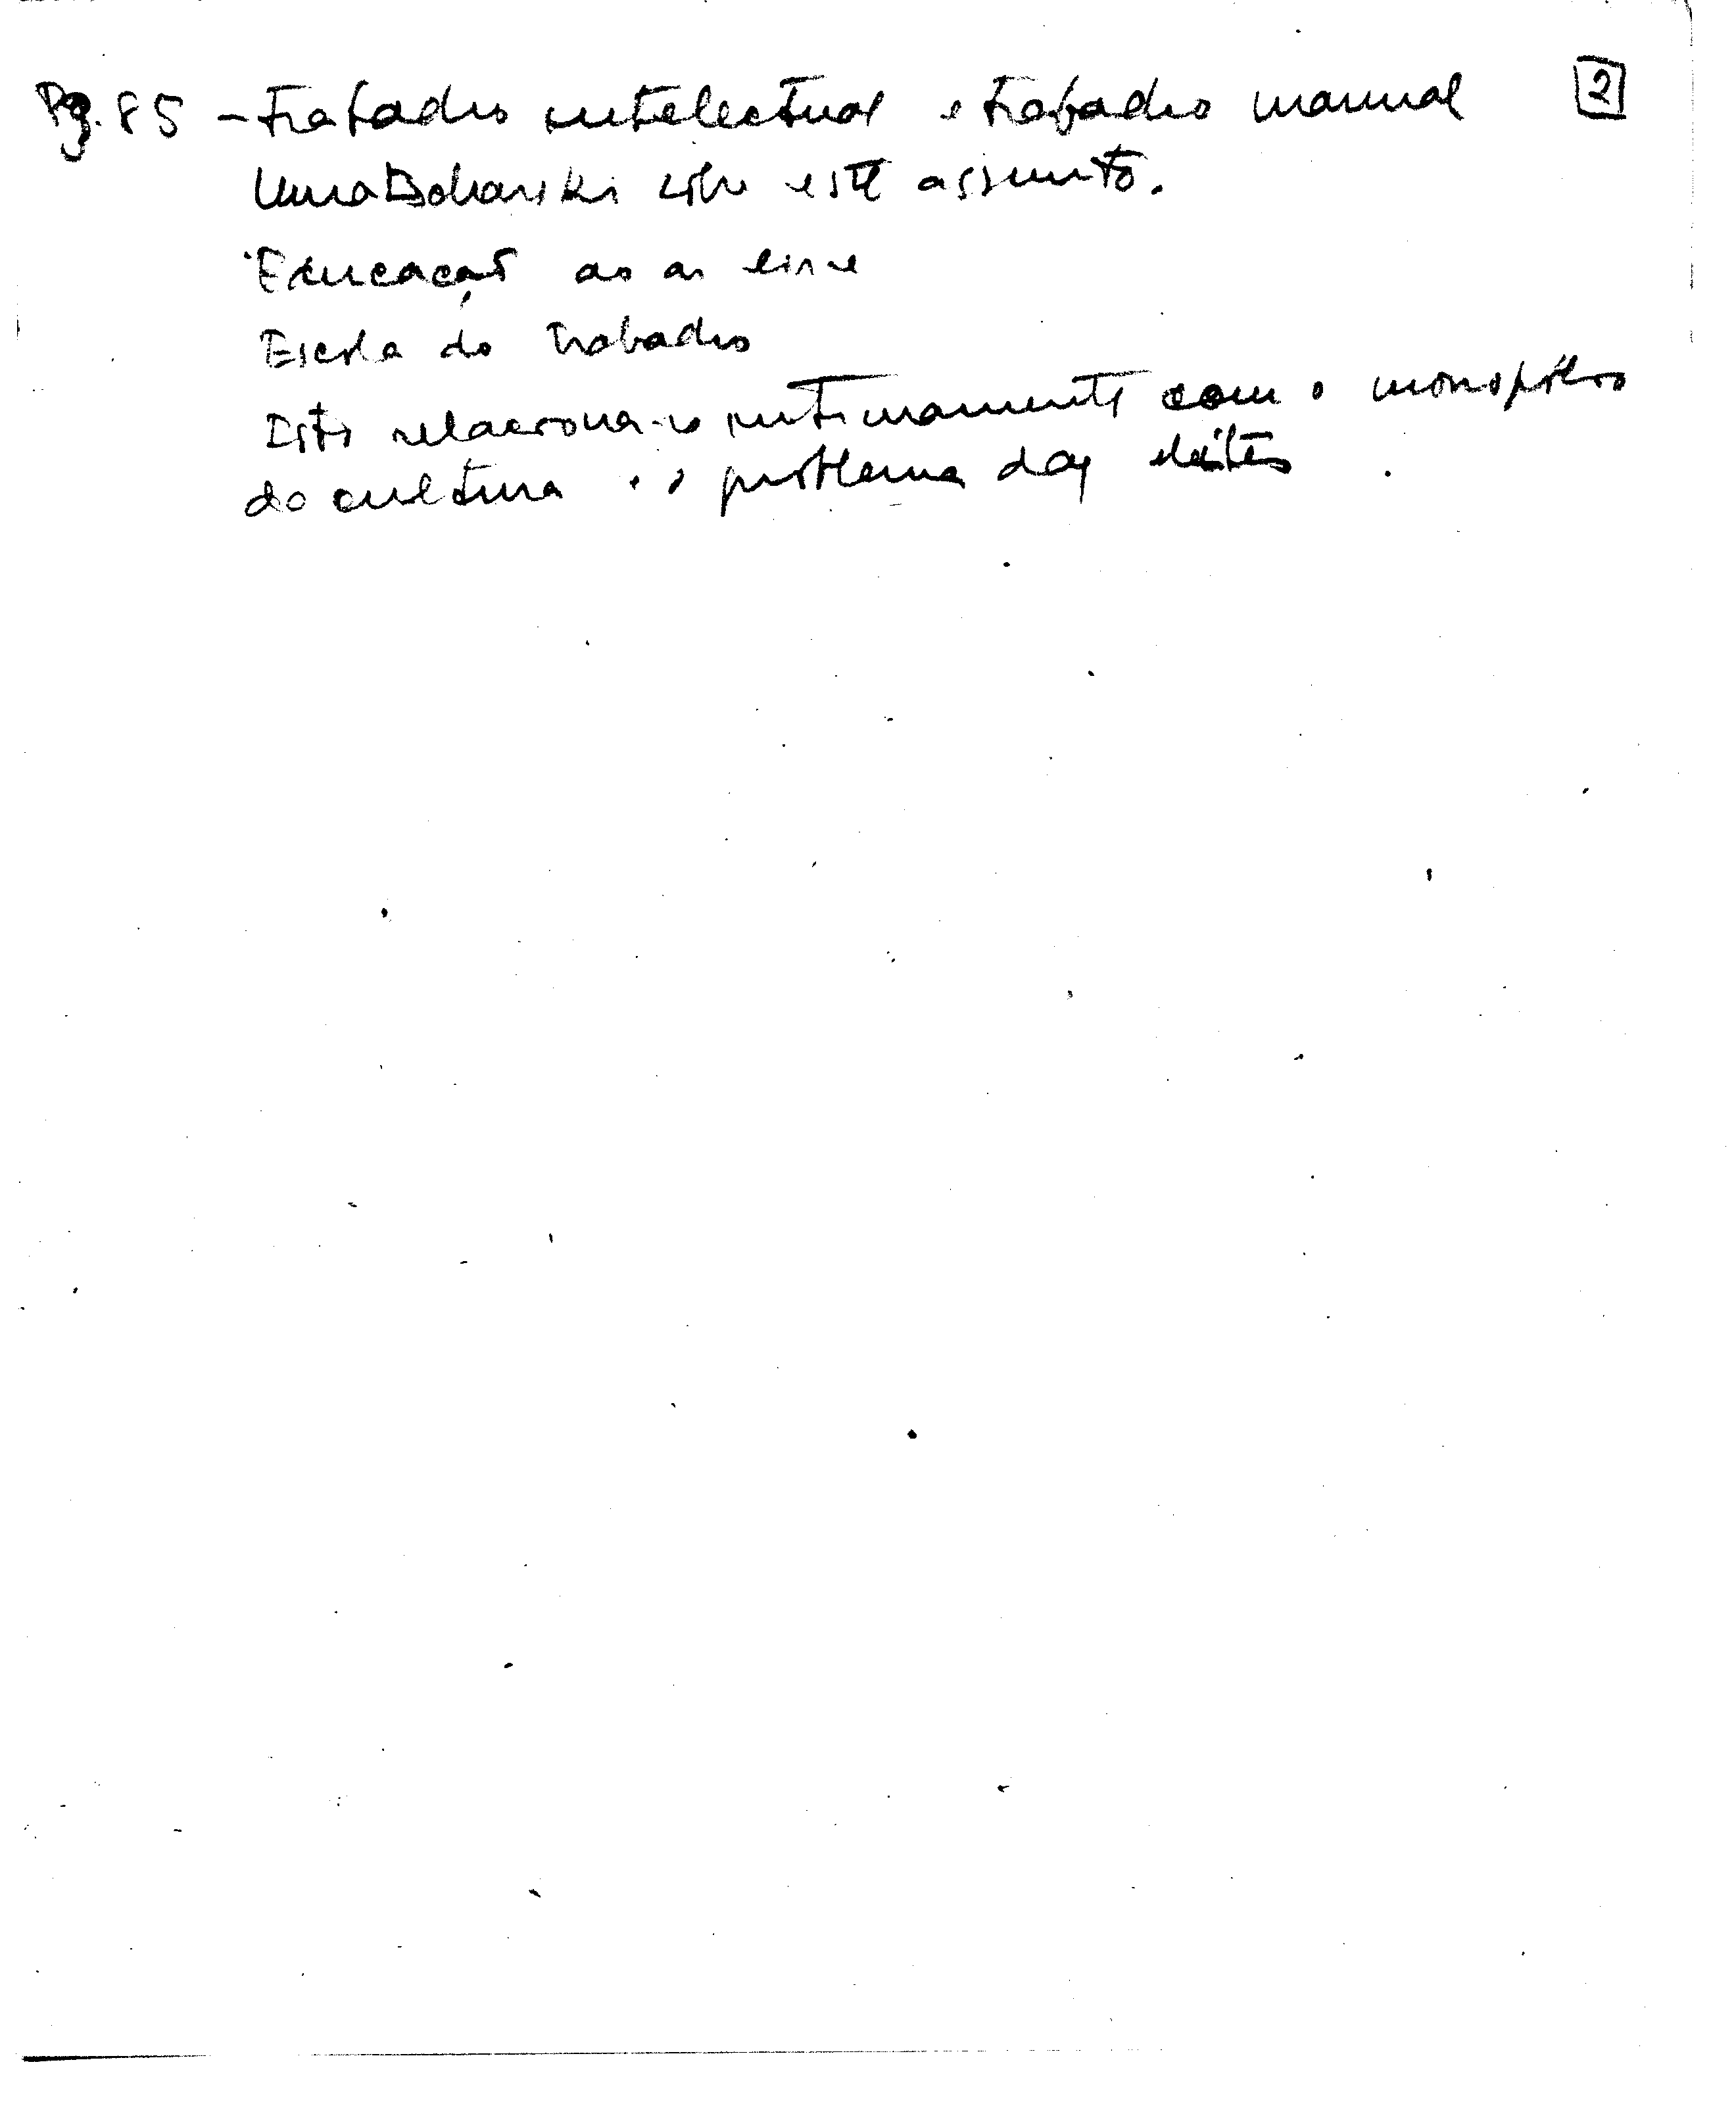 Pg. 85 - Trabalho intelectual e trabalho manual [2]
sobre este assunto.
Educação ao ar livre
Escola do trabalho
Isto relaciona-se intimamente com o monopólio
da cultura e o problema das elites